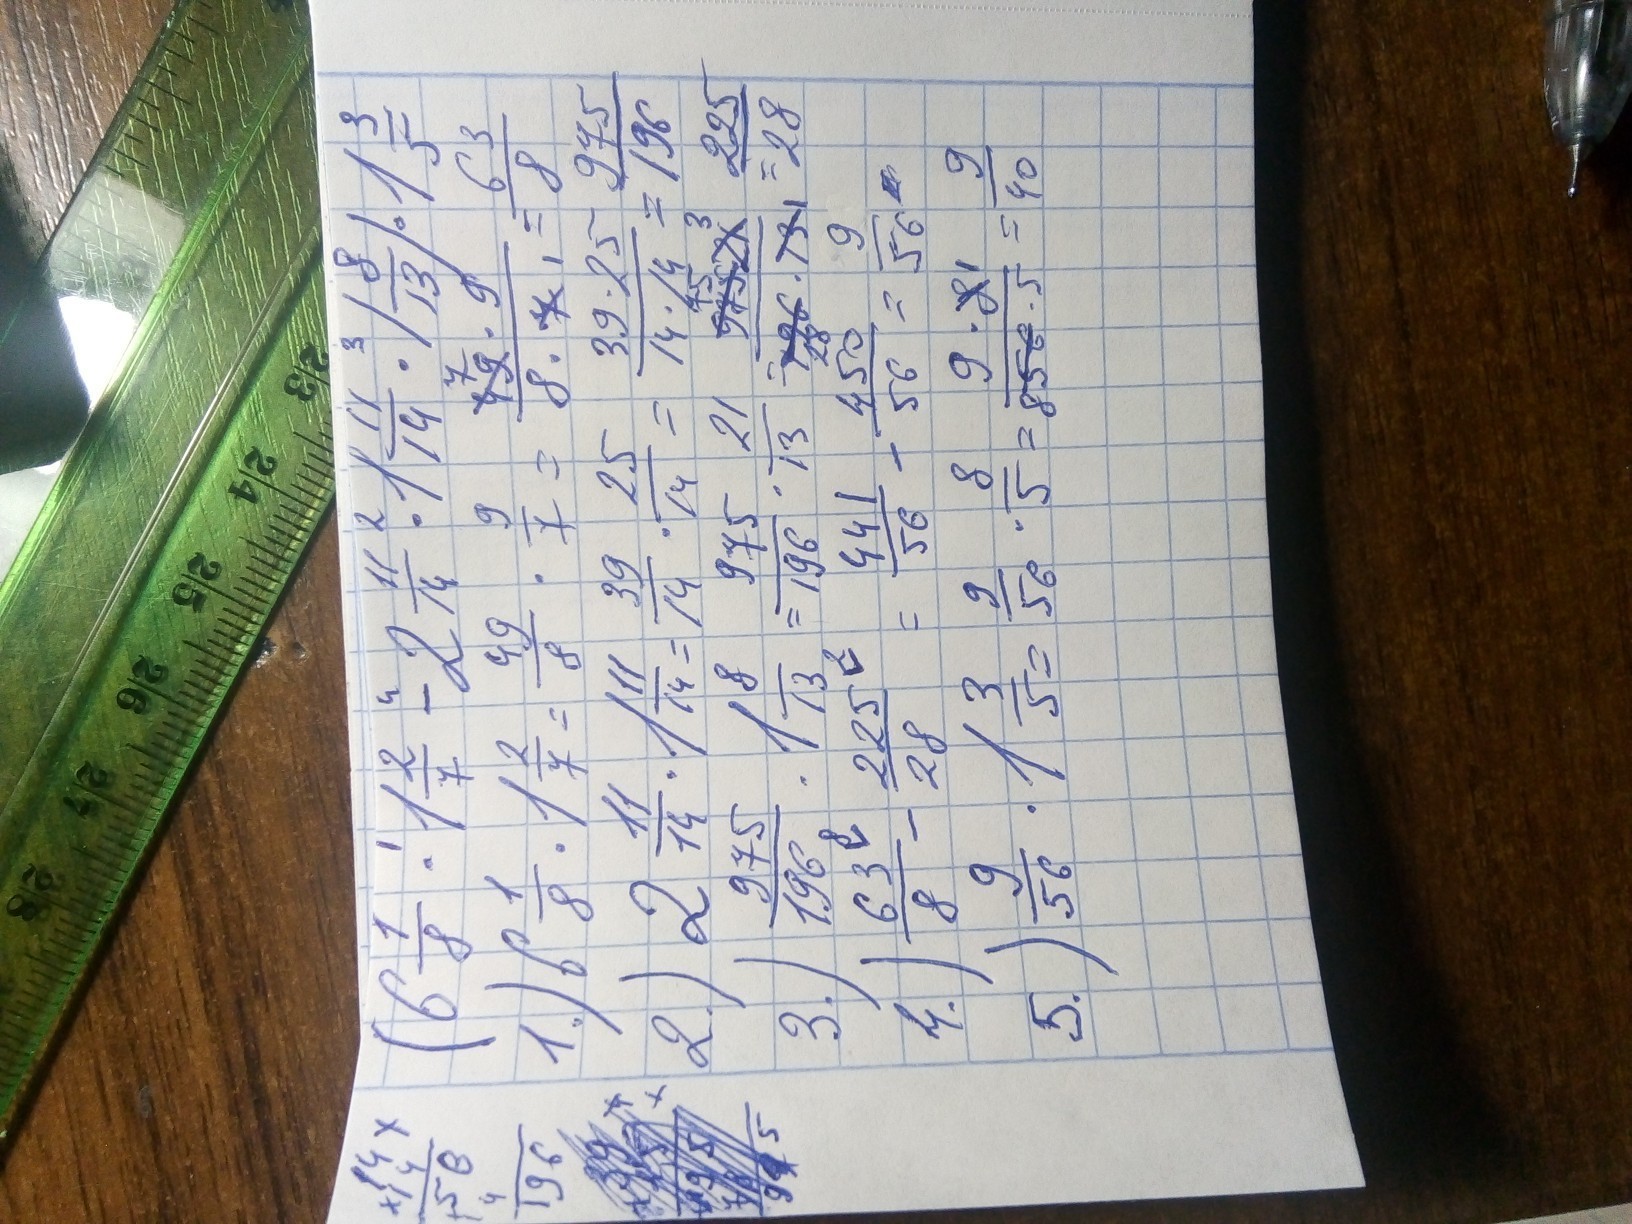 (6 1/8 · 1 2/7 - 2 11/14 · 1 11/14 · 1 8/13) · 1 3/5
1 4 2 3
1.) 6 1/8 · 1 2/7 = 49/8 · 9/7 = 49·9/8·7 = 63/8
7 1 3
2.) 2 11/14 · 1 11/14 = 39/14 · 25/14 = 39·25/14·14 = 975/196
3.) 975/196 · 1 8/13 = 975/196 · 21/13 = 975·21/196·13 = 225/28
75 3 28 1
4.) 63/8 - 225/28 = 441/56 - 450/56 = 9/56
5.) 9/56 · 1 3/5 = 9/56 · 8/5 = 9·8/56·5 = 9/40
1 8
14
×14
58
4
196
28 27 26 25 24 23